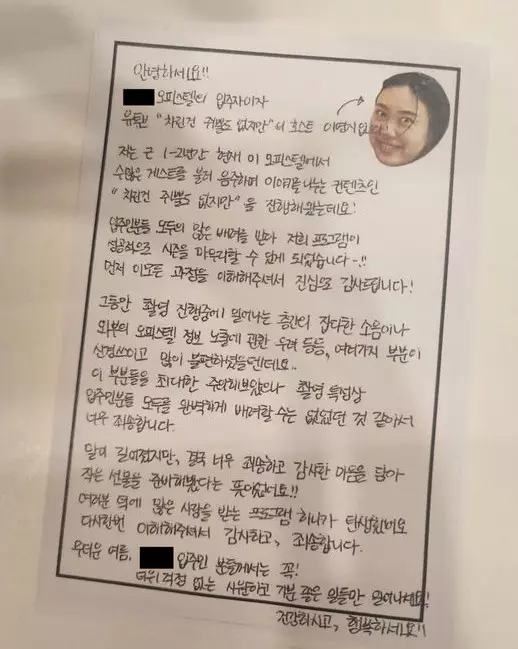 안녕하세요!!
오피스텔의 입주자이자
유튜브 "차린건 쥐뿔도 없지만"의 호스트 이영지입니다
저는 근 1-2년간 현재 이 오피스텔에서
수많은 게스트를 불러 음주하며 이야기를 나누는 컨텐츠인
"차린건 쥐뿔도 없지만"을 진행해왔는데요!
입주민분들 모두의 많은 배려를 받아 저희 프로그램이
성공적으로 시즌을 마무리할 수 있게 되었습니다-!!
먼저 이 모든 과정을 이해해주셔서 진심으로 감사드립니다!
그동안 촬영 진행중에 일어나는 층간의 잡다한 소음이나
외부의 오피스텔 정보 노출에 관한 우려 등등, 여러가지 부분이
신경쓰이고 많이 불편하셨을텐데요..
이 부분들을 최대한 주의해보았으나 촬영 특성상
입주민분들 모두를 완벽하게 배려할 수는 없었던 것 같아서
너무 죄송합니다.
말이 길어졌지만, 결국 너무 죄송하고 감사한 마음을 담아
작은 선물을 준비해봤다는 뜻이었어요!!
여러분 덕에 많은 사랑을 받는 프로그램 하나가 탄생했네요
다시한번 이해해주셔서 감사하고, 죄송합니다.
무더운 여름, 입주민 분들께서는 꼭!
더위 걱정 없는 시원하고 기분 좋은 일들만 일어나세요!
건강하시고, 행복하세요!!